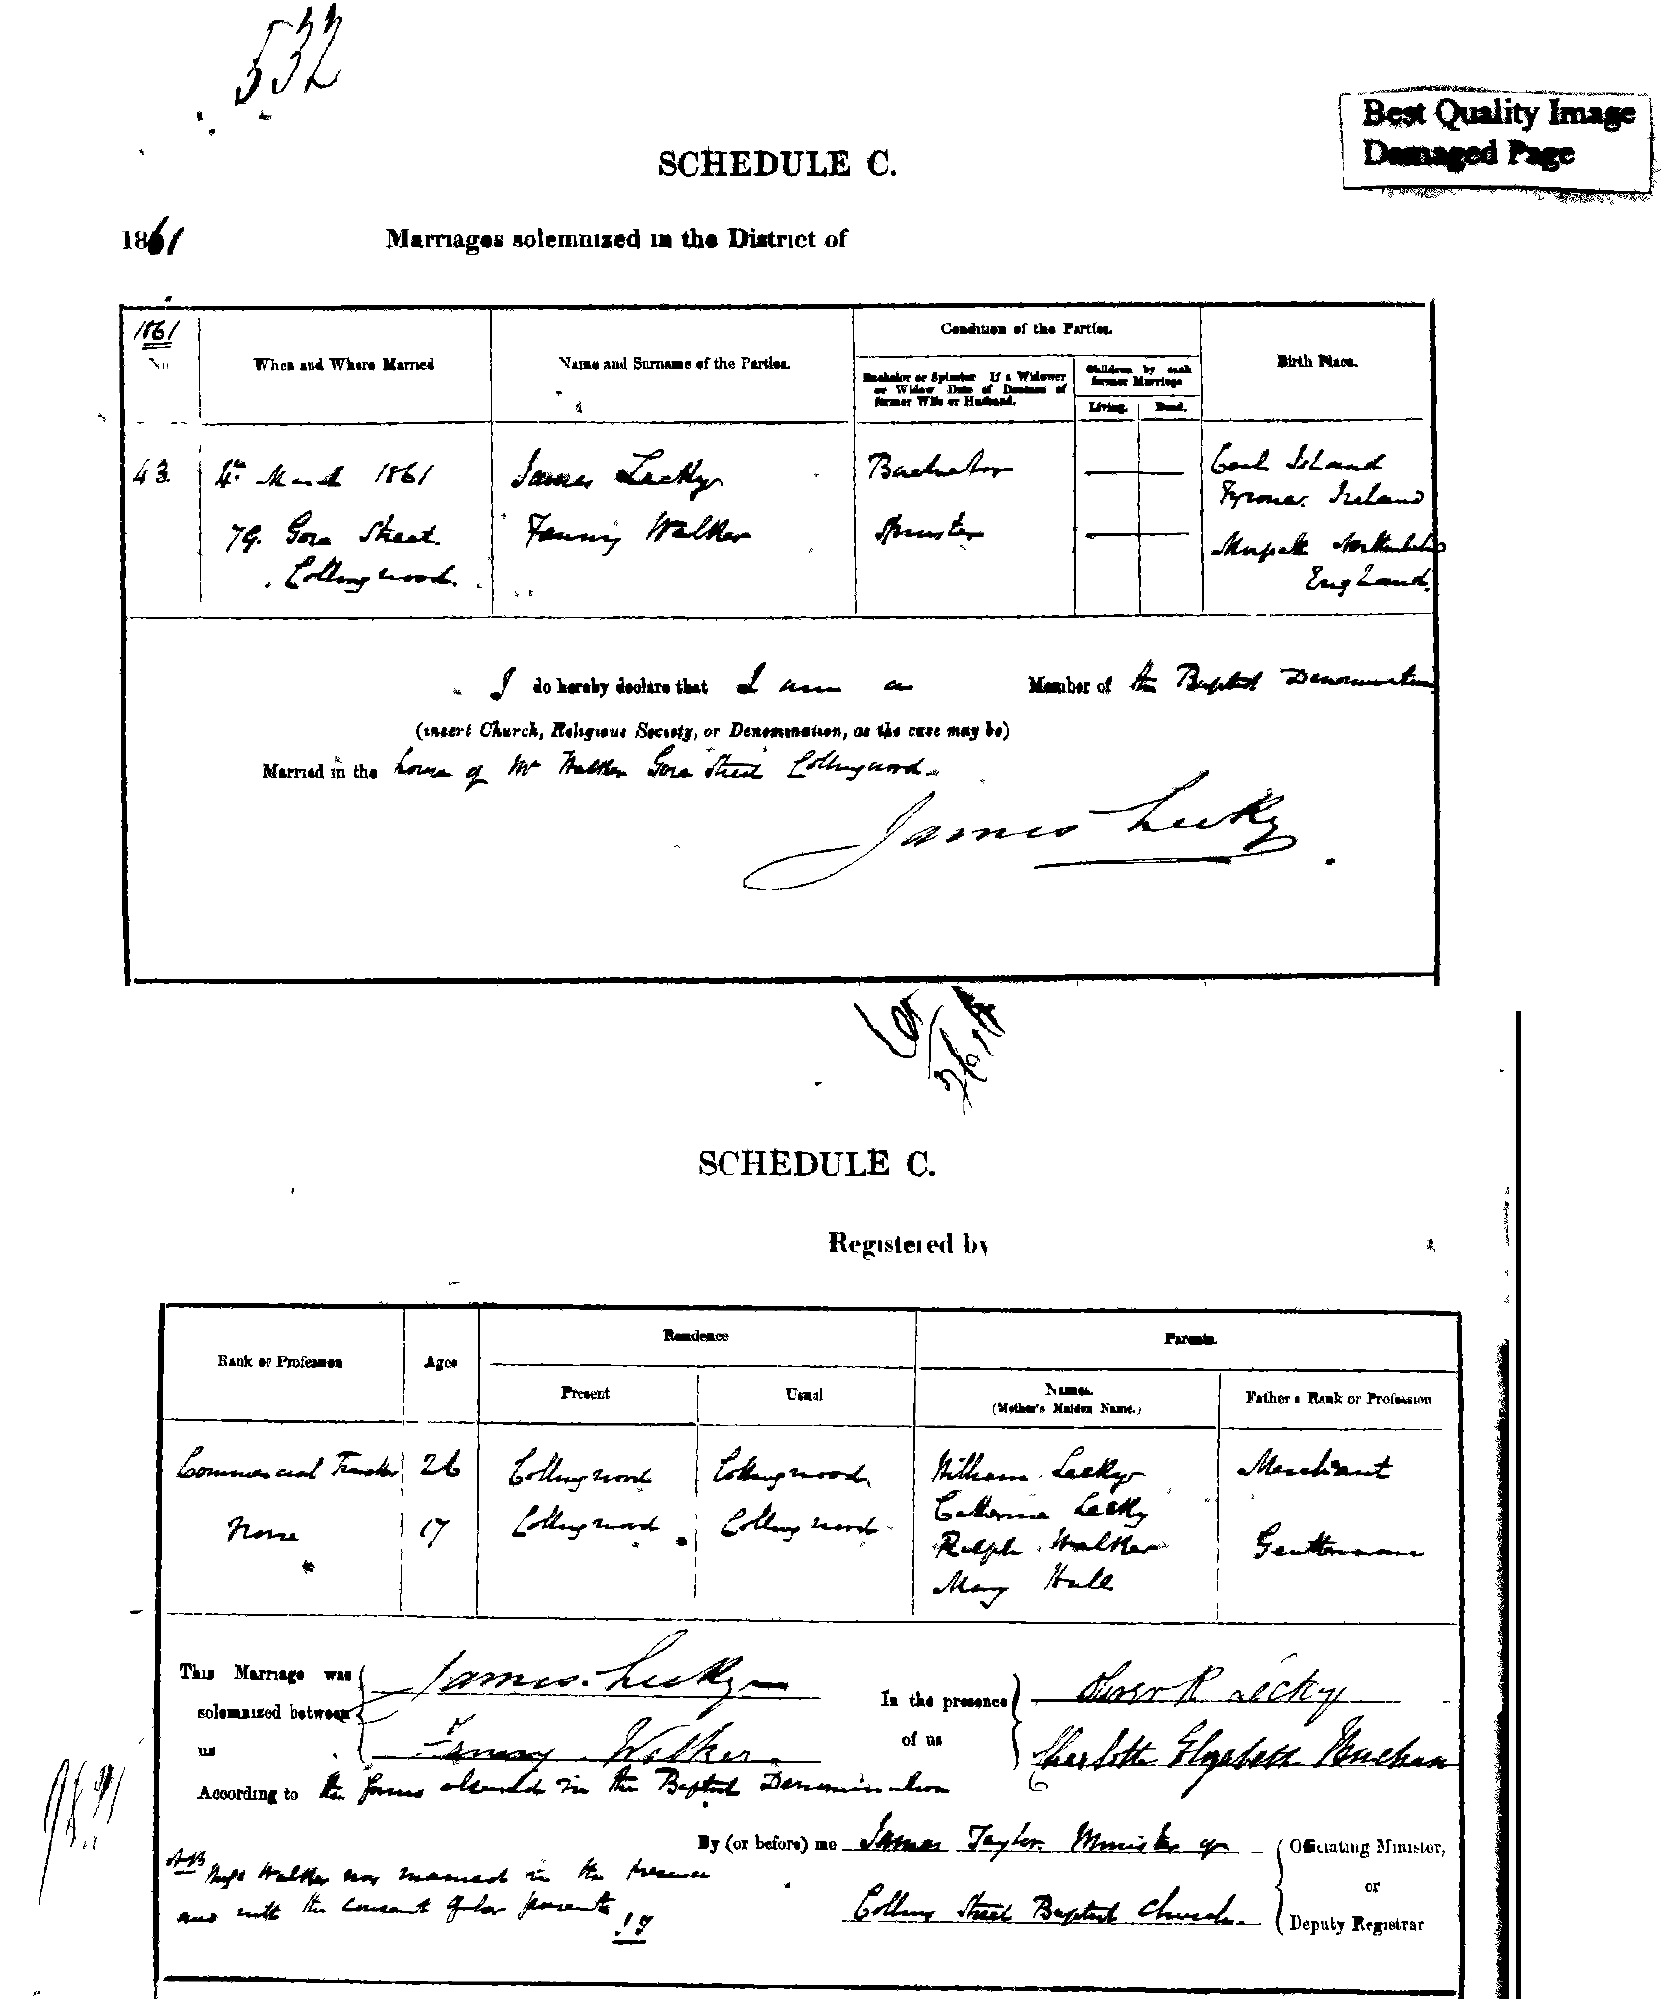 532
Best Quality Image
Damaged Page
SCHEDULE C.
1861 Marriages solemnized in the District of
1861
No
When and Where Married
Name and Surname of the Parties.
Condition of the Parties.
Bachelor or Spinster If a Widower
or Widow Date of Decease of
former Wife or Husband.
Children by each
former Marriage
Living. Dead.
Birth Place.
43. 4th March 1861 James Lecky Bachelor Coal Island
Tyrone. Ireland
79. Gore Street. Fanny Walker Spinster Morpeth
Collingwood. England.
I do hereby declare that I am a Member of the Baptist Denomination
(insert Church, Religious Society, or Denomination, as the case may be)
Married in the house of Mr Walker Gore Street Collingwood.
James Lecky
SCHEDULE C.
Registered by
Rank or Profession
Ages
Residence
Present
Usual
Parents.
Names.
(Mother's Maiden Name.)
Father's Rank or Profession
Commercial 26 Collingwood Collingwood William Lecky Merchant
Catherine Lecky
None 17 Collingwood Collingwood Ralph Walker Gentleman
Mary Hall
This Marriage was
solemnized between
us
James Lecky
Fanny Walker.
In the presence
of us
R Lecky
Charlotte Elizabeth
According to the forms observed in the Baptist Denomination
By (or before) me James Taylor. Minister of
Collins Street Baptist Church.
Officiating Minister,
or
Deputy Registrar
NB Miss Walker was married in the presence
and with the consent of her parents